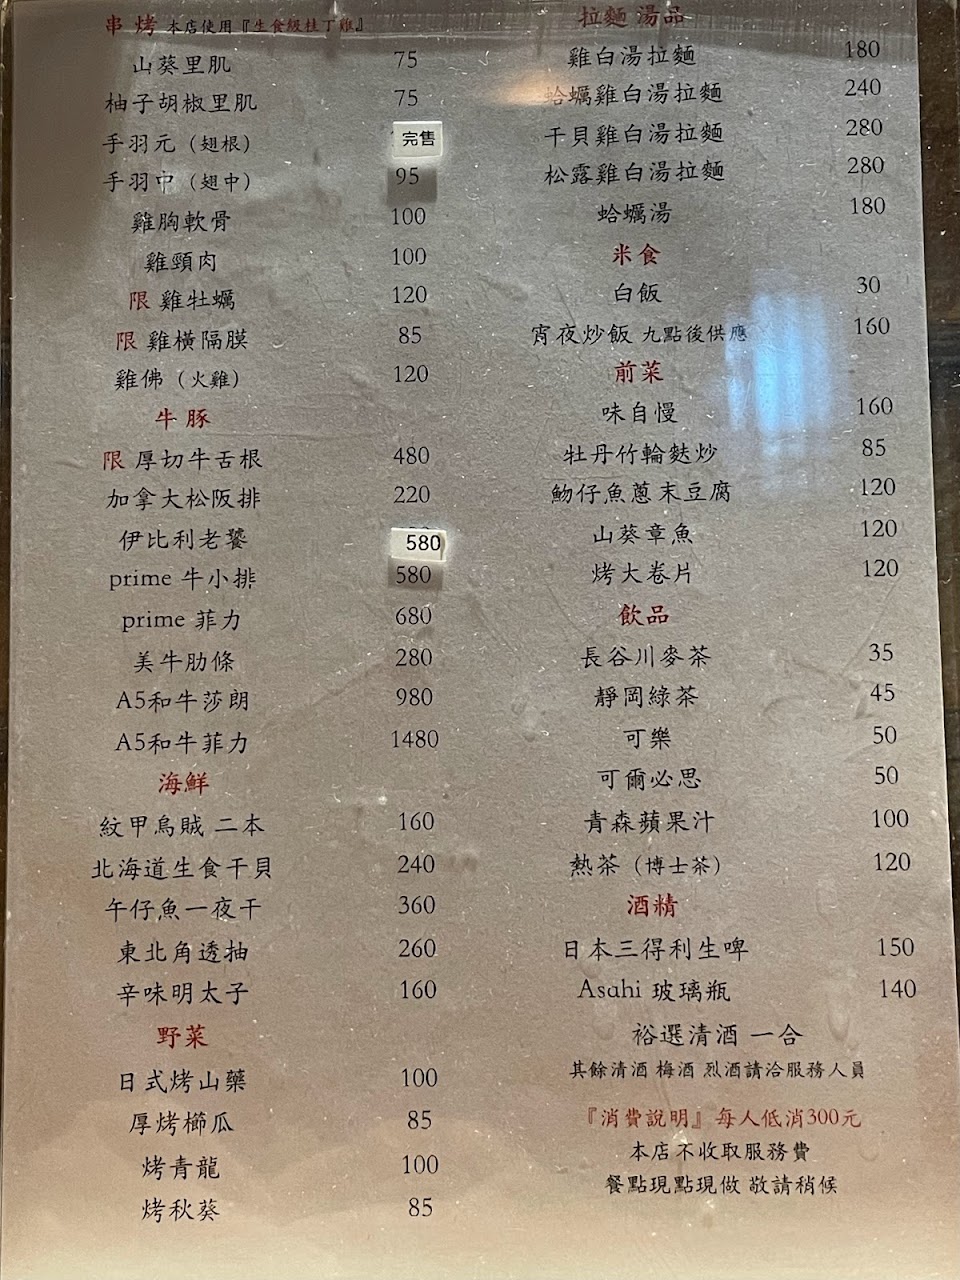 串 烤 本店使用『生食級桂丁雞』
山葵里肌 75
柚子胡椒里肌 75
手羽元（翅根） 完售
手羽中（翅中） 95
雞胸軟骨 100
雞頸肉 100
限 雞牡蠣 120
限 雞橫隔膜 85
雞佛（火雞） 120
牛 豚
限 厚切牛舌根 480
加拿大松阪排 220
伊比利老饕 580
prime 牛小排 580
prime 菲力 680
美牛肋條 280
A5和牛莎朗 980
A5和牛菲力 1480
海鮮
紋甲烏賊 二本 160
北海道生食干貝 240
午仔魚一夜干 360
東北角透抽 260
辛味明太子 160
野菜
日式烤山藥 100
厚烤櫛瓜 85
烤青龍 100
烤秋葵 85
拉麵 湯品
雞白湯拉麵 180
蛤蠣雞白湯拉麵 240
干貝雞白湯拉麵 280
松露雞白湯拉麵 280
蛤蠣湯 180
米食
白飯 30
宵夜炒飯 九點後供應 160
前菜
味自慢 160
牡丹竹輪麩炒 85
魩仔魚蔥末豆腐 120
山葵章魚 120
烤大卷片 120
飲品
長谷川麥茶 35
靜岡綠茶 45
可樂 50
可爾必思 50
青森蘋果汁 100
熱茶（博士茶） 120
酒精
日本三得利生啤 150
Asahi 玻璃瓶 140
裕選清酒 一合
其餘清酒 梅酒 烈酒請洽服務人員
『消費說明』每人低消300元
本店不收取服務費
餐點現點現做 敬請稍候